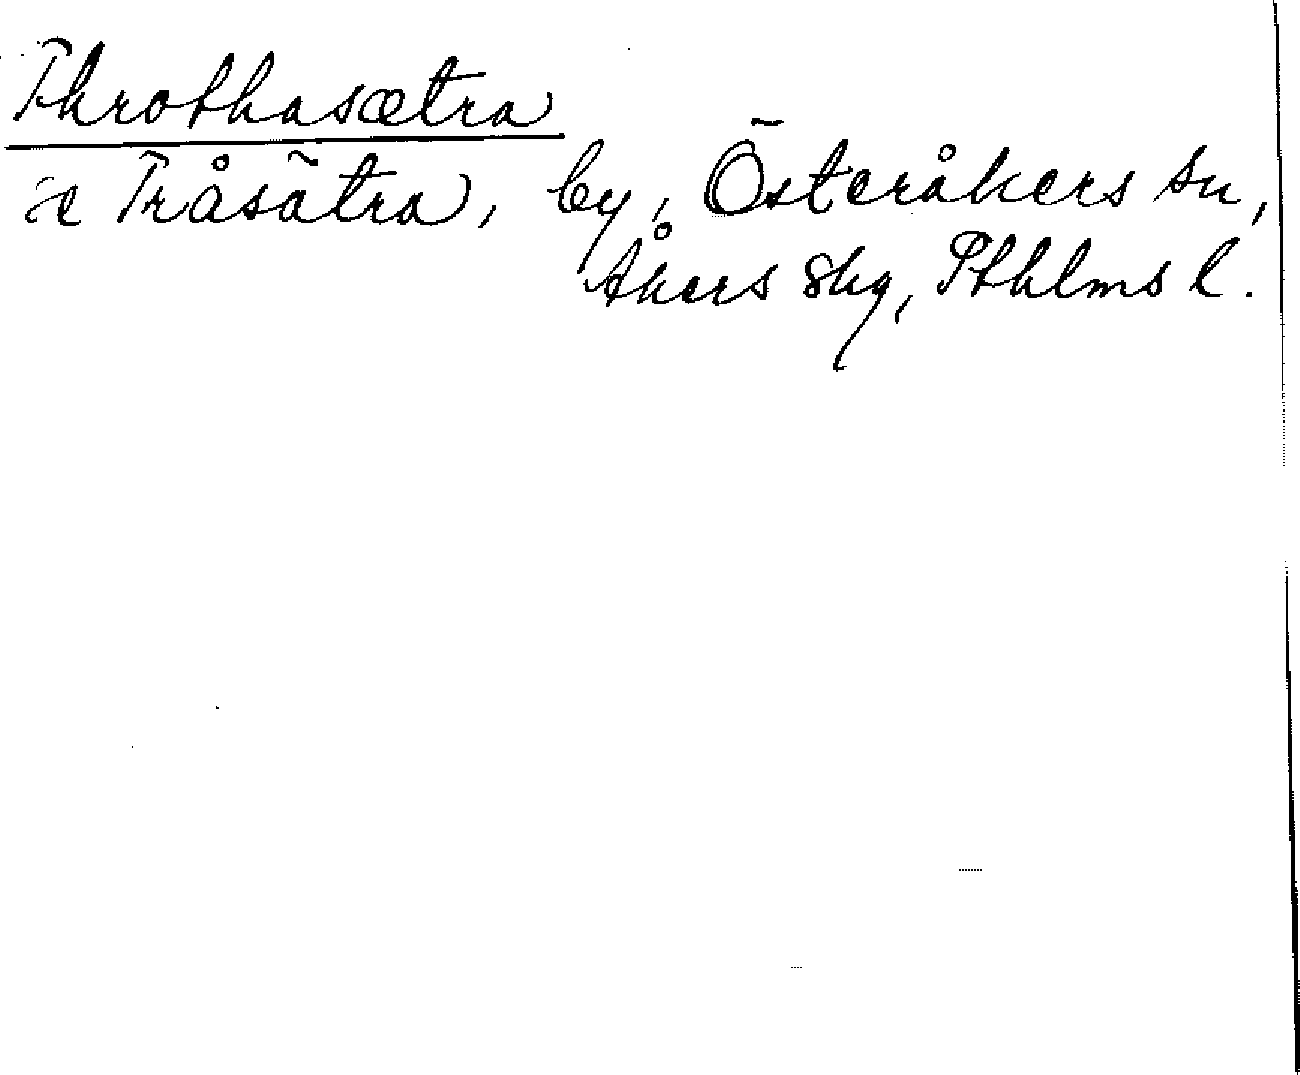 Throthasætra
se Tråsätra, by, Österåkers sn,
Åkers skg, Sthlms l.